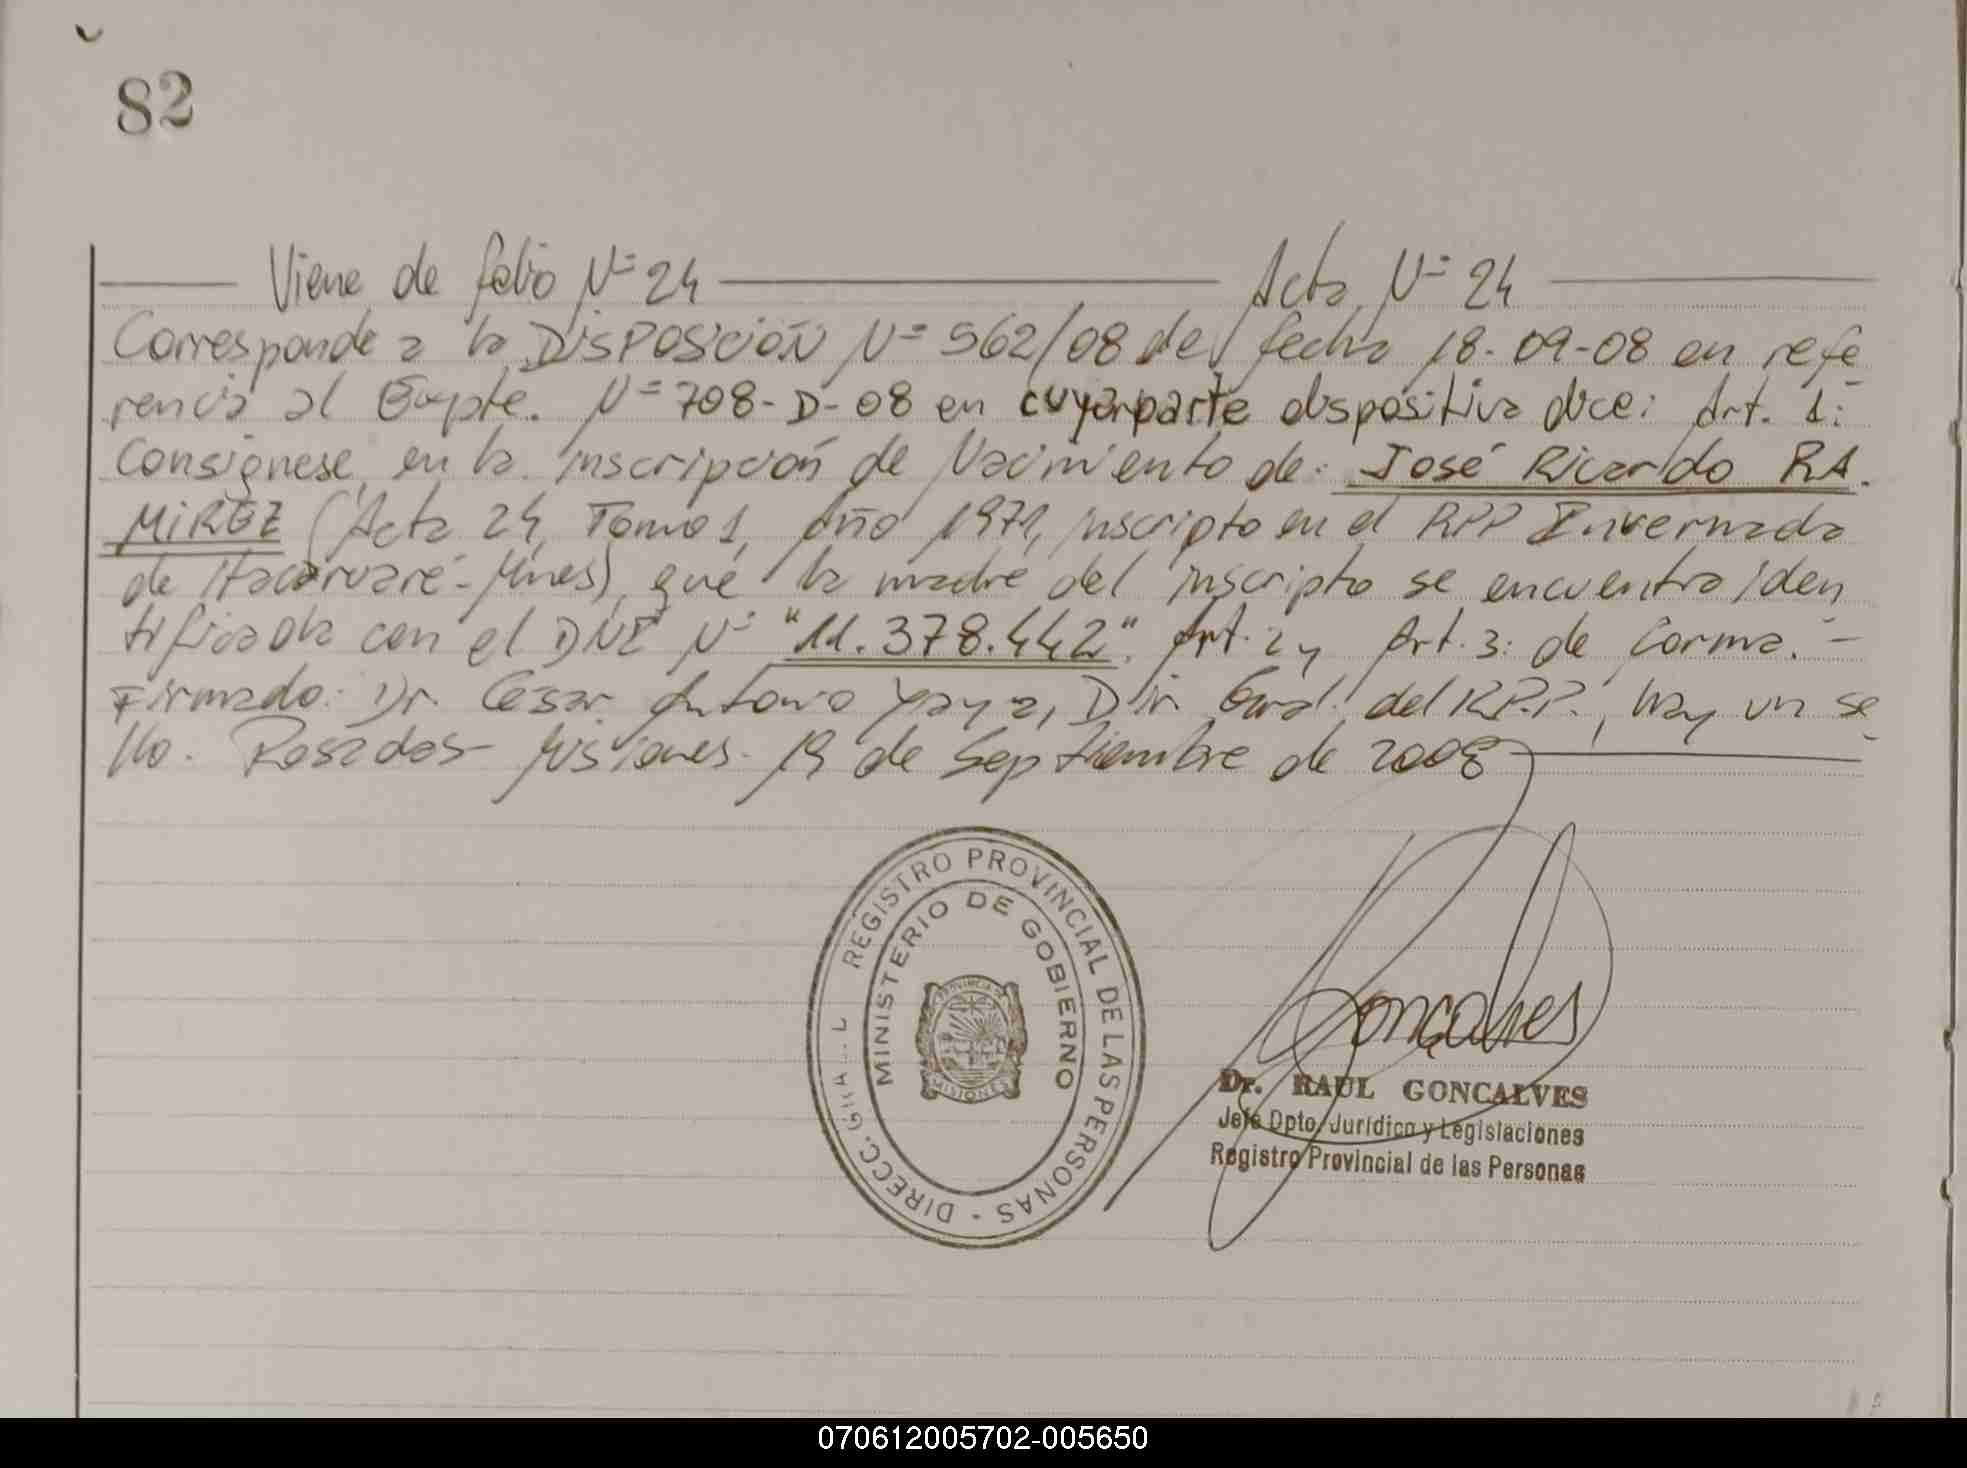 82
Viene de folio Nº 24 Acta Nº 24
Corresponde a la DISPOSICIÓN Nº 562/08 de fecha 18-09-08 en refe
rencia al Expte. Nº 708-D-08 en cuya parte dispositiva dice: Art. 1:
Consígnese en la inscripción de Nacimiento de: José Ricardo RA
MIREZ (Acta 24, Tomo 1, Año 1971, inscripto en el RPP Invernada
de Itacaruaré-Mnes), que la madre del inscripto se encuentra iden
tificada con el DNI Nº "11.378.442". Art. 2 y Art. 3: de forma.-
Firmado: Dr. César Antonio Yaya, Dir Gral. del R.P.P., hay un se
llo. Posadas Misiones. 19 de Septiembre de 2008
REGISTRO PROVINCIAL DE LAS PERSONAS - DIRECC. GRAL
MINISTERIO DE GOBIERNO
PROVINCIA DE
MISIONES
Goncalves
Dr. RAUL GONCALVES
Jefe Dpto. Jurídico y Legislaciones
Registro Provincial de las Personas
070612005702-005650